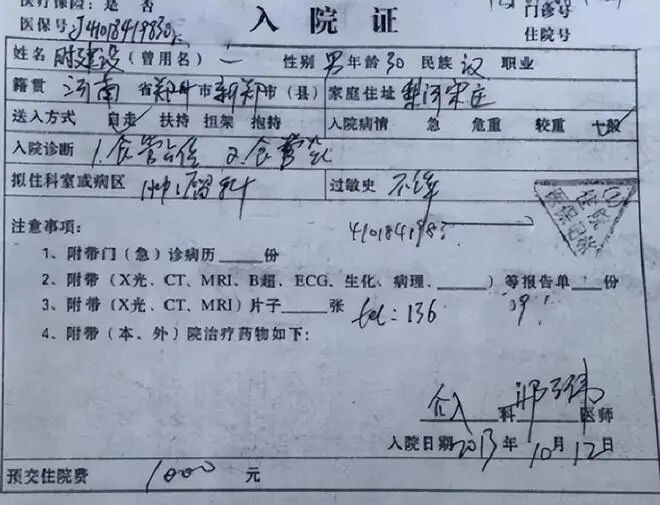 医疗保险：是 否
门诊号
医保号 J41018419830
入院证
住院号
姓名 时建设 （曾用名） 一 性别 男 年龄 30 民族 汉 职业
籍贯 河南 省 郑州 市 新郑 市（县） 家庭住址 梨河宋庄
送入方式 自走 扶持 担架 抱持 入院病情 急 危重 较重 一般
入院诊断 1.食管占位 2.食管炎
拟住科室或病区 过敏史 不详
住院
医保记账
注意事项： 410184198
1、附带门（急）诊病历____份
2、附带（X光、CT、MRI、B超、ECG、生化、病理、______）等报告单___份
3、附带（X光、CT、MRI）片子____张 tel：136 09
4、附带（本、外）院治疗药物如下：
介入 科 医师
入院日期 2013年 10月 12日
预交住院费 1000 元